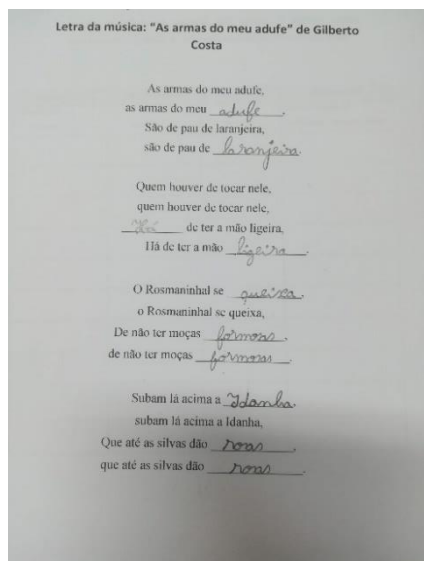 Letra da música: "As armas do meu adufe" de Gilberto
Costa
As armas do meu adufe,
as armas do meu adufe.
São de pau de laranjeira,
são de pau de laranjeira.
Quem houver de tocar nele,
quem houver de tocar nele,
Há de ter a mão ligeira,
Há de ter a mão ligeira.
O Rosmaninhal se queixa,
o Rosmaninhal se queixa,
De não ter moças formoas,
de não ter moças formoas.
Subam lá acima a Idanha,
subam lá acima a Idanha,
Que até as silvas dão roas,
que até as silvas dão roas.